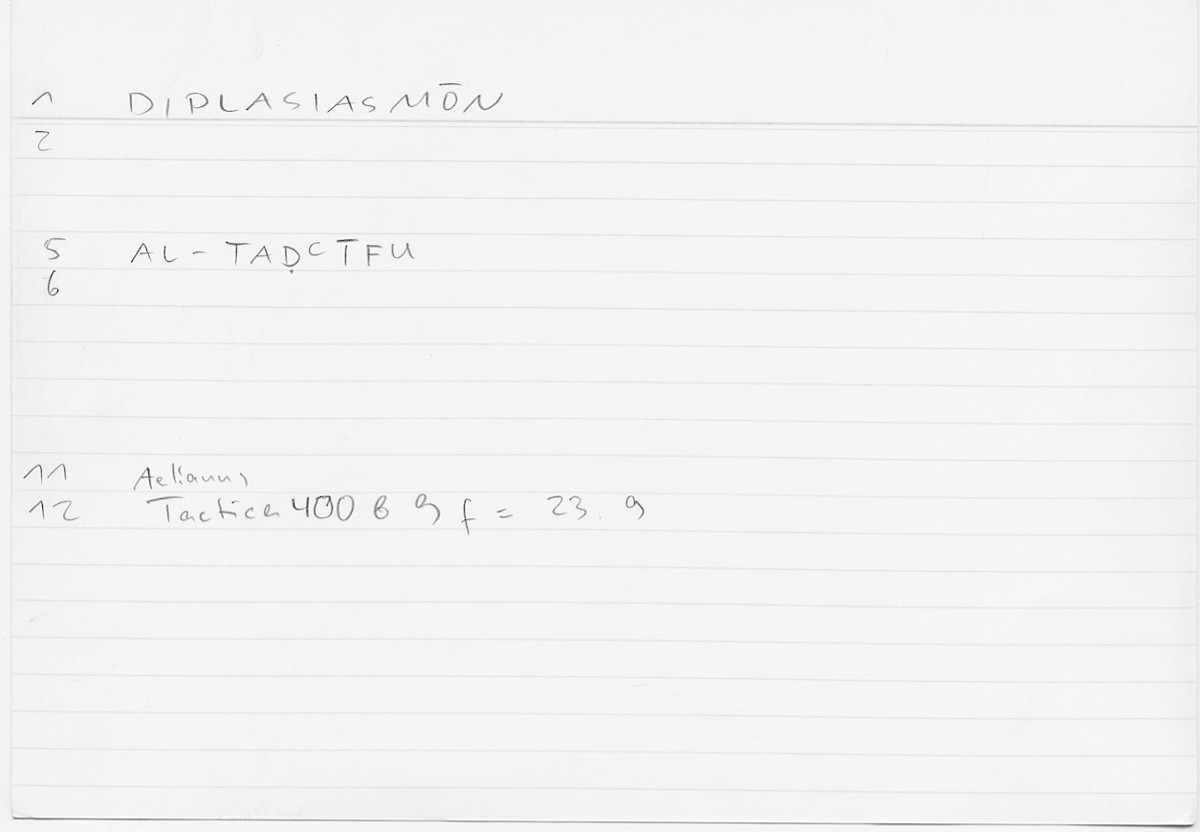 1 DIPLASIASMŌN
2
5 AL-TAḌCĪFU
6
11 Aelianus
12 Tactica 400 b 9 f = 23.9